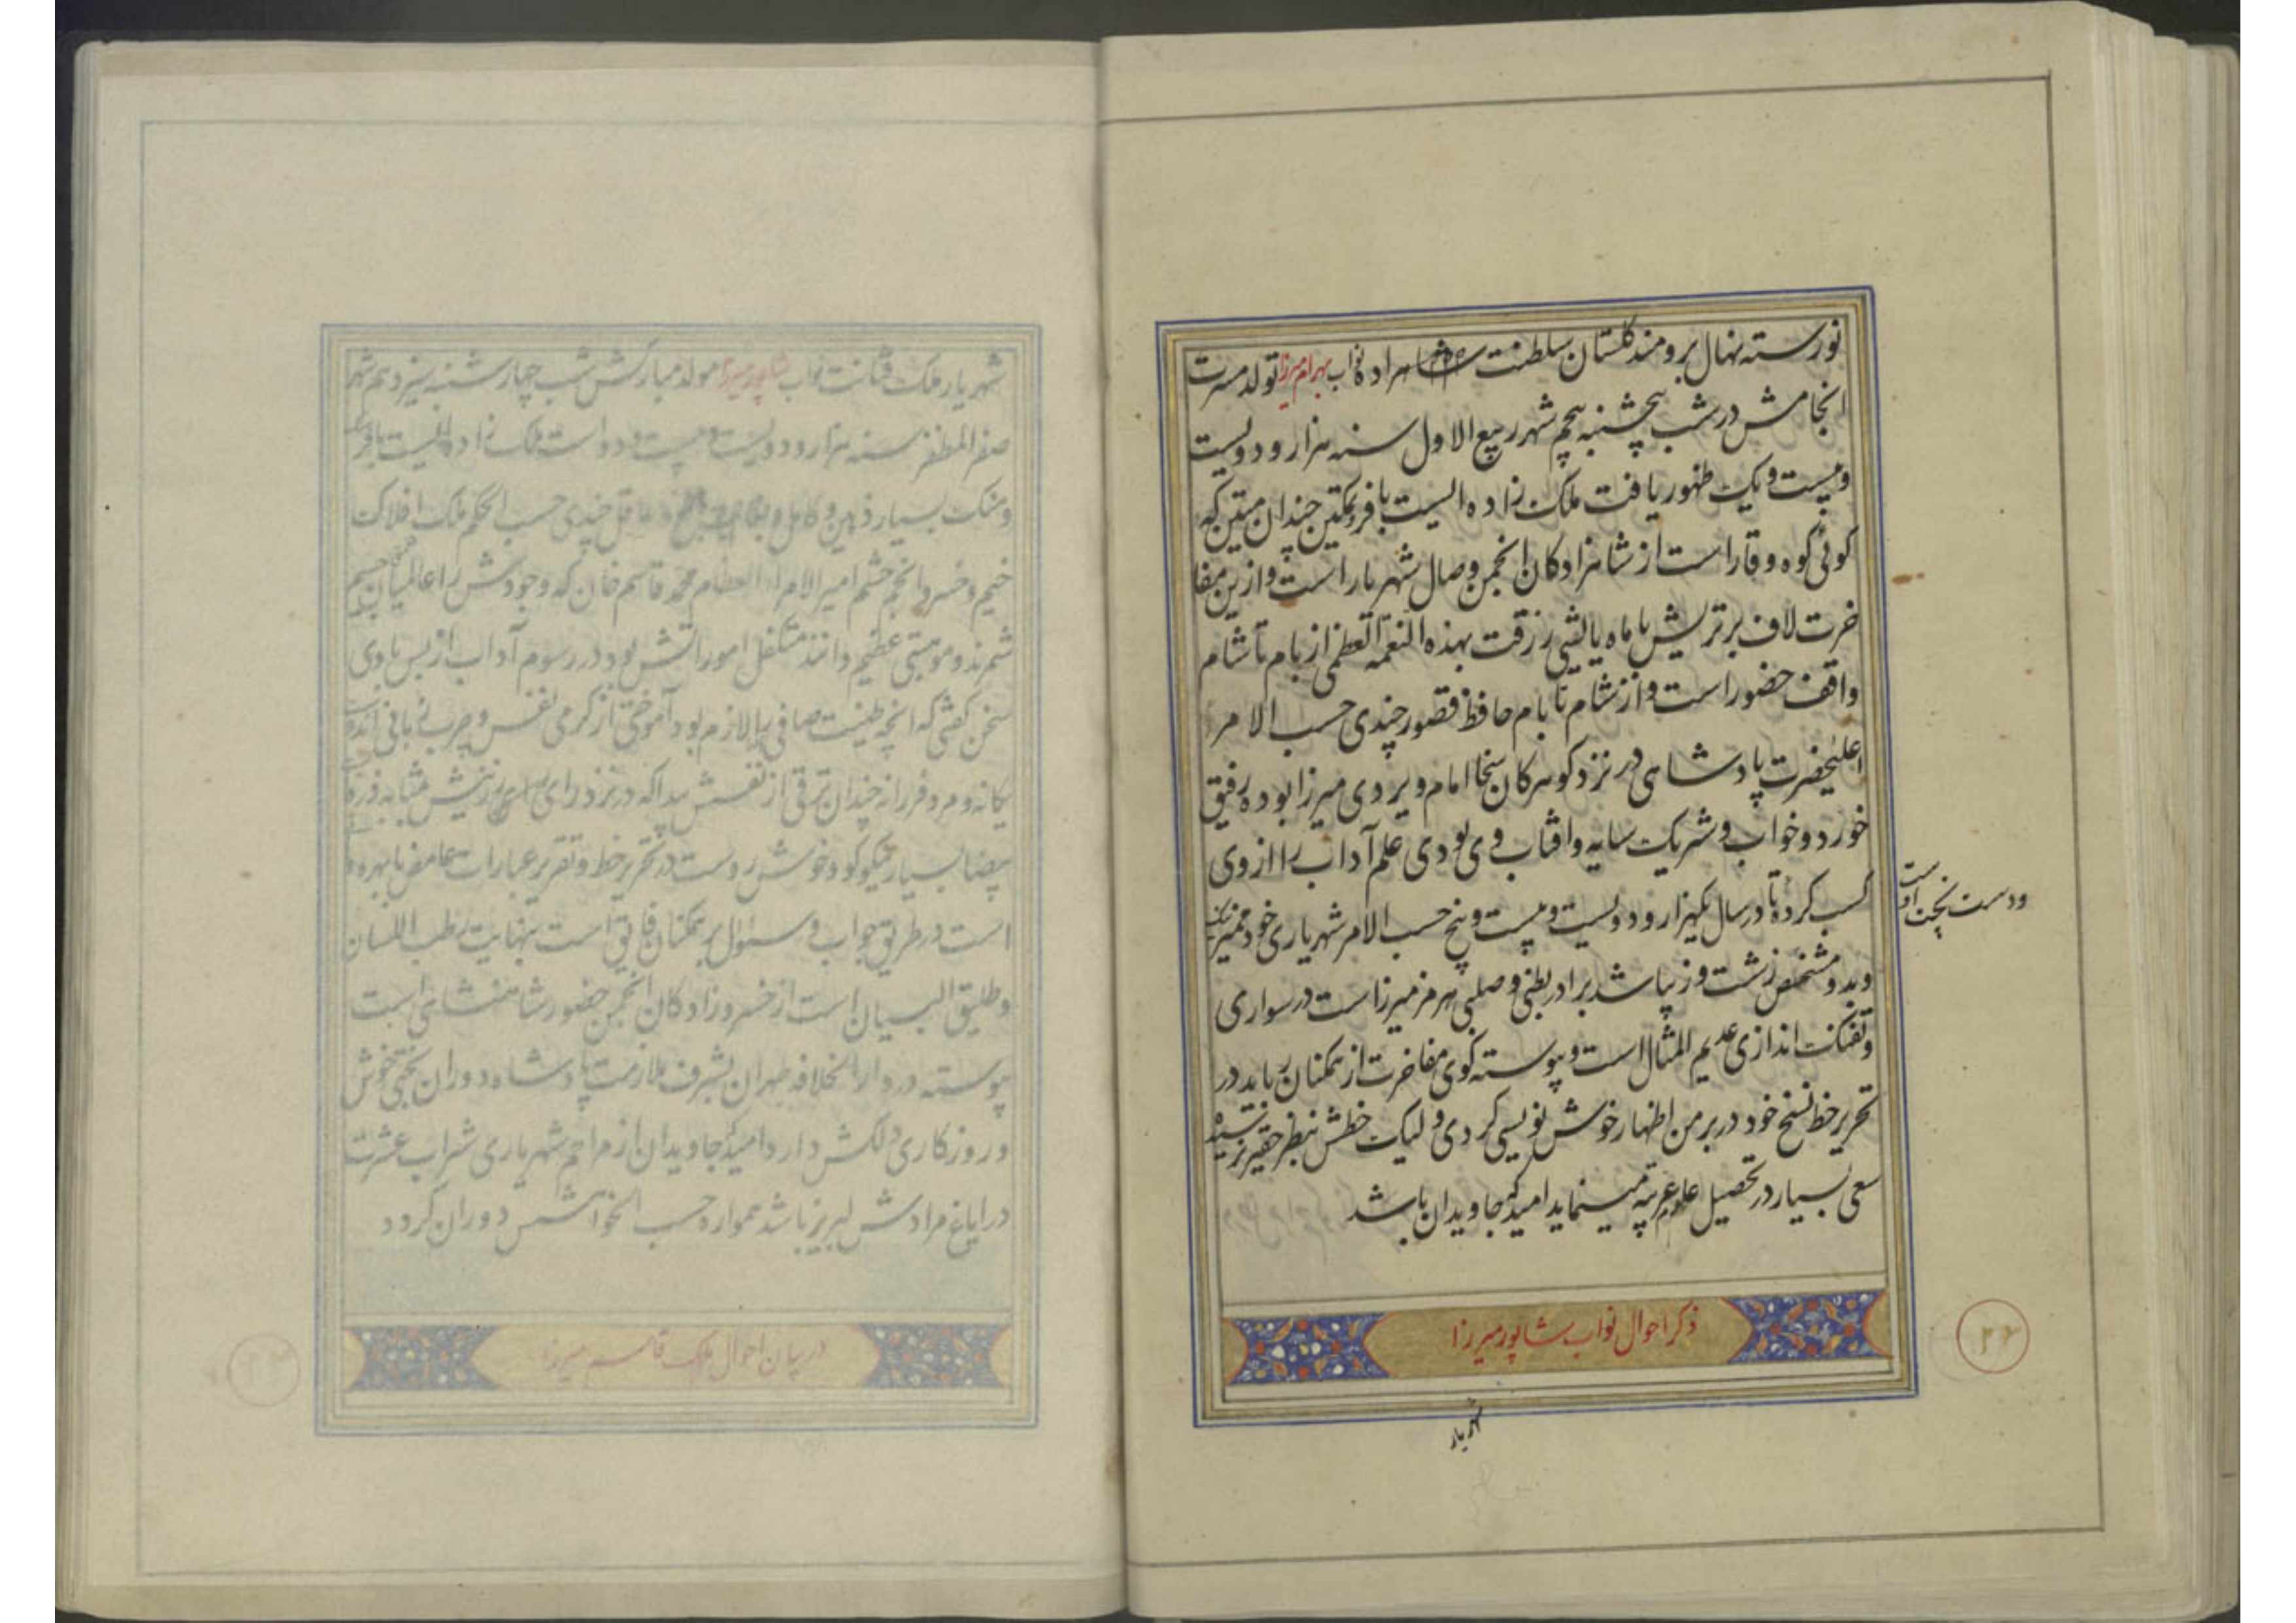 نورسته نهال برومند گلستان سلطنت شاهزاده نواب بهرام میرزا تولد مسرت
انجامش در شب پنجشنبه پنجم شهر ربیع الاول سنه هزار و دویست
و بیست و یک ظهور یافت ملک زاده ایست با فر و تمکین چندان متین که
کوئی کوه وقار است از شاهزادکان انجمن وصال شهریار است و ازین مفا
خرت لاف برتریش با ماه یا لیتنی رزقت بهذه النعمة العظمی از بام تا شام
واقف حضور است و از شام تا بام حافظ قصور چندی حسب الامر
اعلیحضرت پادشاهی در نزد کوهر کان سخا امام ویردی میرزا بوده رفیق
خورد و خواب و شریک سایه و افتاب وی بودی علم آداب را از وی
کسب کرده تا در سال یکهزار و دویست و بیست و پنج حسب الامر شهریاری خود ممیز نیک
و بد و مشخص زشت و زیبا شد برادر بطنی و صلبی هرمز میرزاست در سواری
و تفنک اندازی عدیم المثال است و پیوسته کوی مفاخرت از همکنان رباید در
تحریر خط نسخ خود در بر من اظهار خوش نویسی کردی و لیک خطش بنظر حقیر نرسیده
سعی بسیار در تحصیل علوم عربیه مینماید امید که جاویدان باشد
ذکر احوال نواب شاپور میرزا
شهریار
۲۴
شهریار ملک فطانت نواب شاپور میرزا مولد مبارکش شب چهارشنبه سیزدهم شهر
صفر المظفر سنه هزار و دویست و بیست و دو است ملک زاده ایست با فر
و سنک بسیار ذهین و کامل و عاقل چندی حسب الحکم ملک افلاک
خیم و خسرو انجم حشم امیر الامراء العظام محمد قاسم خان که وجودش را عالمیان
شمرند و موهبتی عظیم دانند متکفل امور اتش بود در رسوم آداب از بس با وی
سخن کفتی که انچه طینت صافی را لازم بود آموختی از کرمی نفس و چرب زبانی
یکانه و مرد فرزانه چندان ترقی از نفسش پیدا که در نزد رای
بیضا بسیار نیکو کو و خوش روست در تحریر خط و تقریر عبارات غامض با بهره
است در طریق جواب و سئوال بر همکنان فایق است بنهایت رطب اللسان
و طلیق البیان است از خسرو زادکان انجمن حضور شاهنشاهی است
پیوسته در دار الخلافه طهران بشرف ملازمت پادشاه دوران بختی خوش
و روزکاری دلکش دارد امید که جاویدان از مراحم شهریاری شراب عشرت
در ایاغ مرادش لبریز باشد همواره حسب الخواهش دوران کردد
در بیان احوال ملک قاسم میرزا